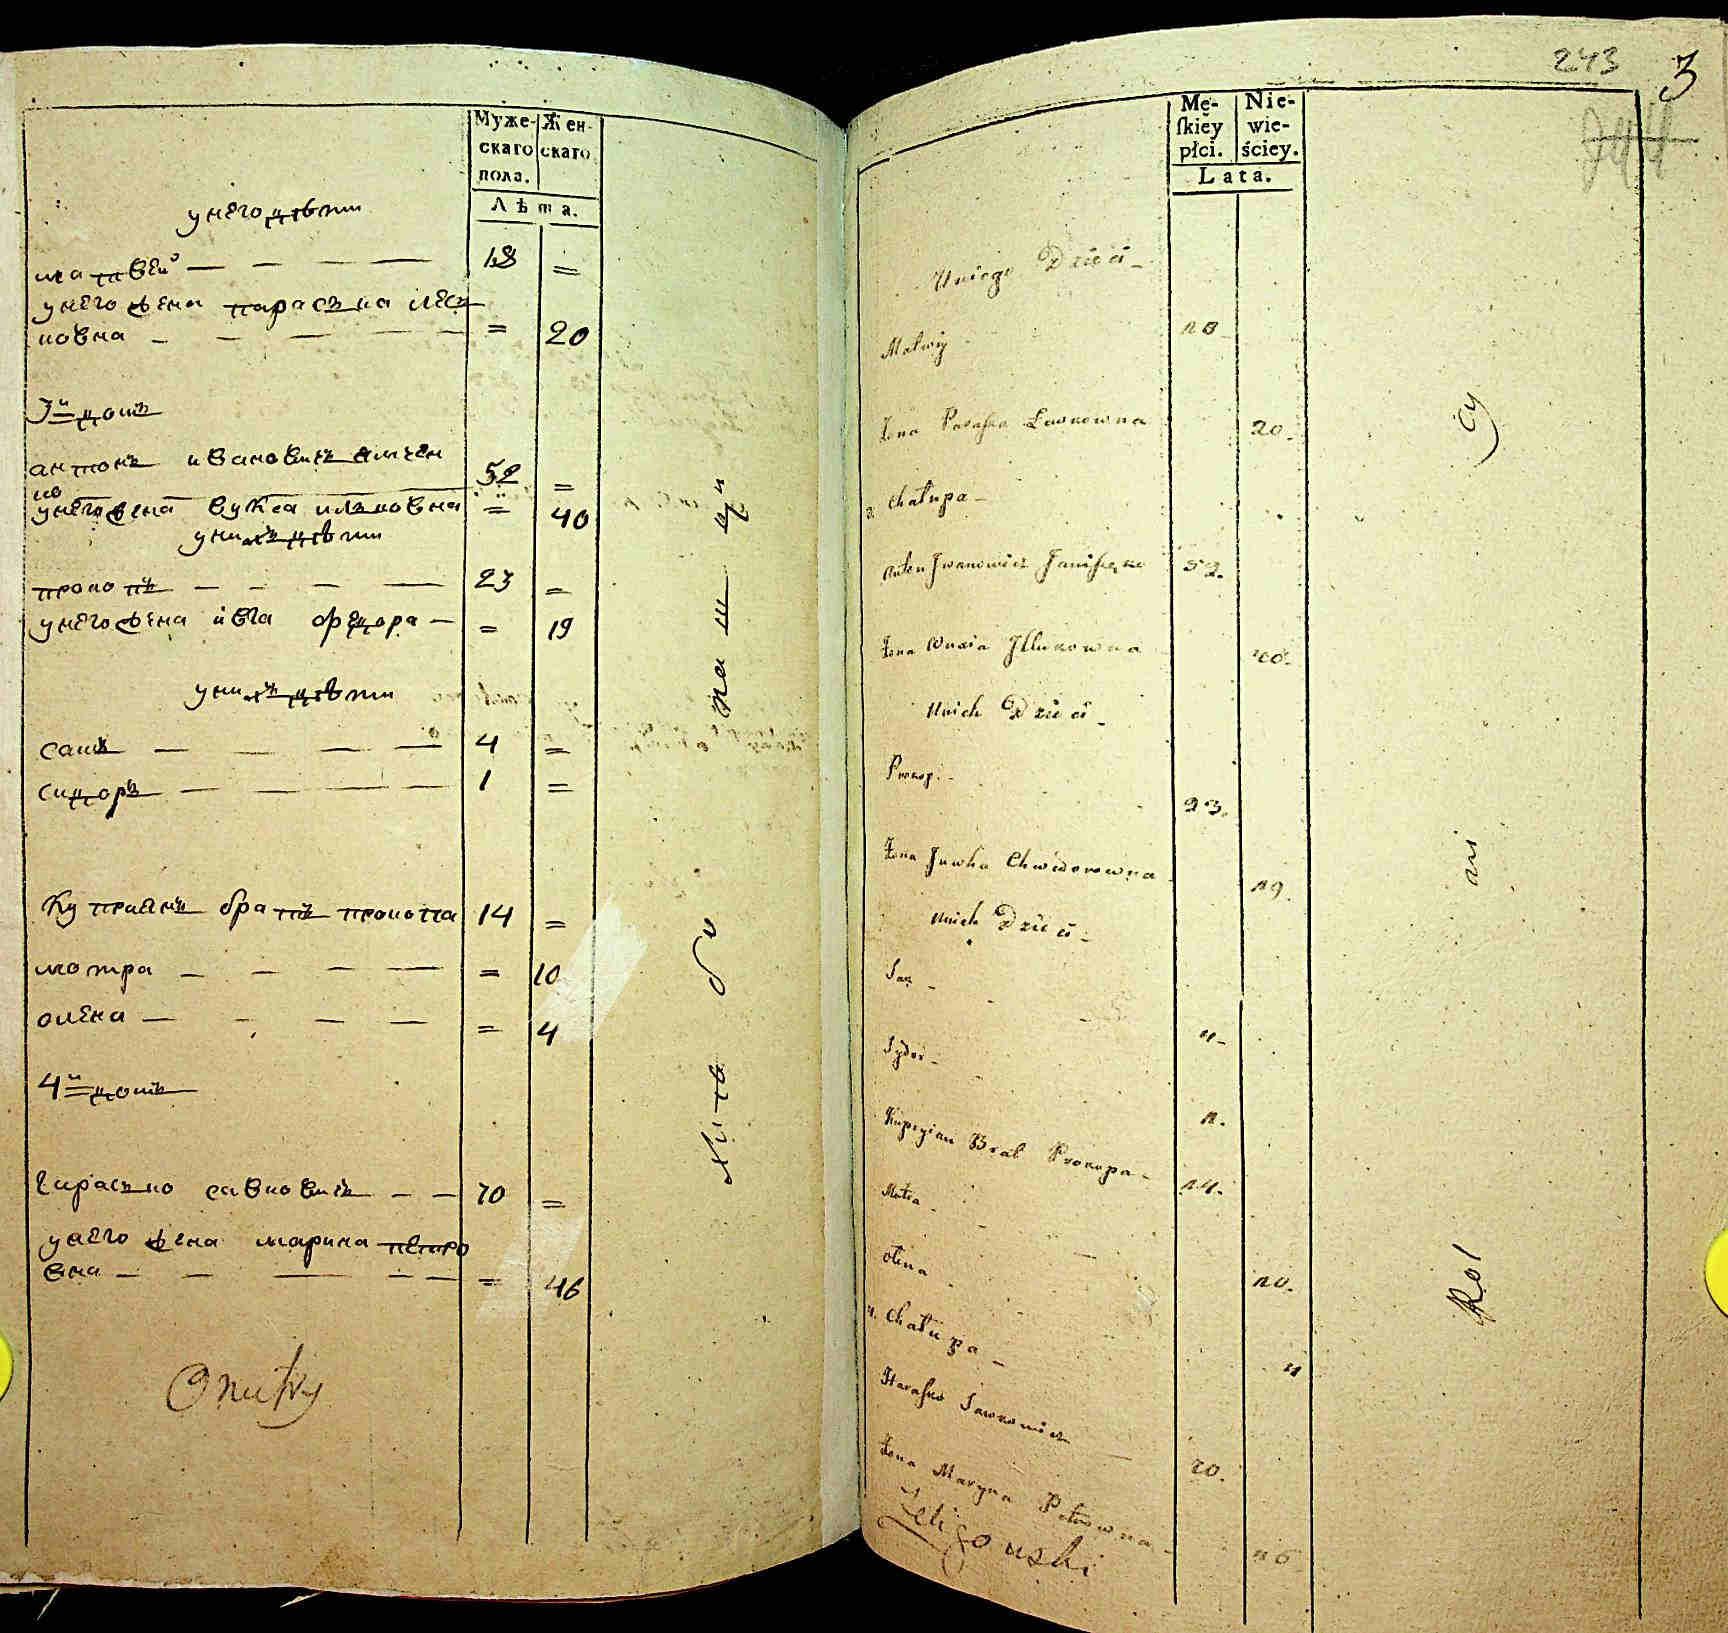 Муже-
скаго
пола.
Жен-
скаго
Лѣта.
у него дѣти
матвей — — — — 18 =
у него жена параска лес
ковна — — — — = 20
3й домъ
антонъ ивановичъ
52 =
у него жена вукса илковна = 40
у нихъ дѣти
прокопъ — — — — 23 =
у него жена ивга федора — = 19
у нихъ дѣти
сакъ — — — — 4 =
сидоръ — — — — 1 =
куприянъ братъ прокопа 14 =
мотра — — — — = 10
олена — — — — = 4
4й домъ
гирасько савковичъ — — 70 =
у него жена марина петро
вна — — — — = 46
243
3
Mę-
ſkiey
płci.
Nie-
wie-
ściey.
Lata.
U niego Dzieci -
Matwiy 18
Żona Paraska Lawkowna 20.
3. Chałupa -
Anton Jwanowicz 52.
Żona Illukowna 40.
U nich Dzieci -
Prokop. - 23.
Żona Jewka Chwedorowna 19.
U nich Dzieci -
Sak - 4 -
Sydor - 1.
Kupryian Brat Prokopa - 14.
Motra - 10.
Olena - 4
4. Chałupa -
Harasko Sawkowicz 70.
Żona Maryna Petrowna - 46